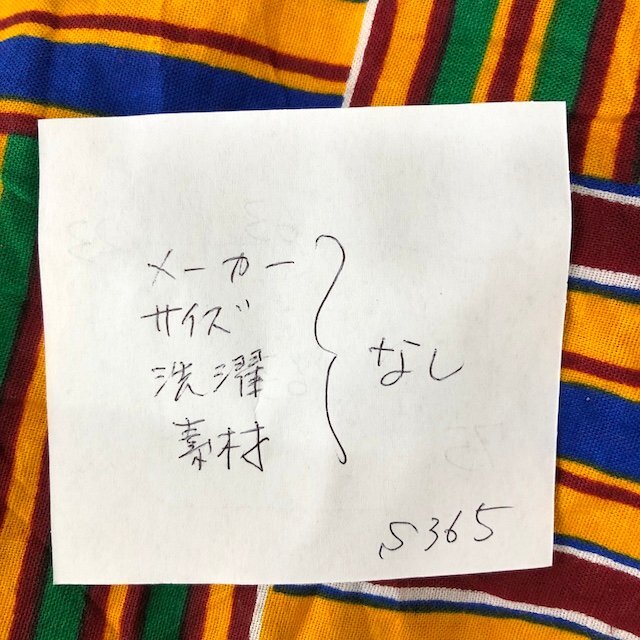 メーカー
サイズ
洗濯
素材
なし
S365